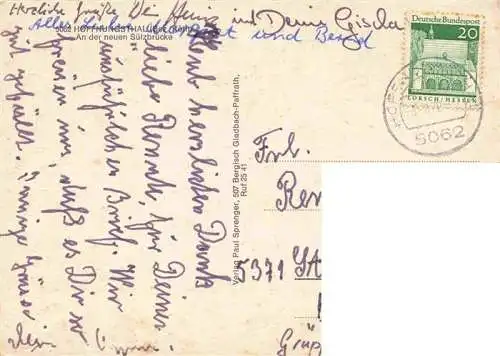 Herzliche Grüße Dein Heinz und Deine Gisela
Alles Liebe Margret und Bernd
5062 HOFFNUNGSTHAL
An der neuen Sülzbrücke
Hab herzlichen Dank
liebe Renate, für Deinen
ausführlichen Brief. Wir
freuen uns, daß es Dir so
gut gefällt. Innige Grüsse
Dein
Verlag Paul Sprenger, 507 Bergisch Gladbach-Paffrath,
Ruf 25 41
Deutsche Bundespost
20
LORSCH/HESSEN
5062
Frl.
Ren
5371